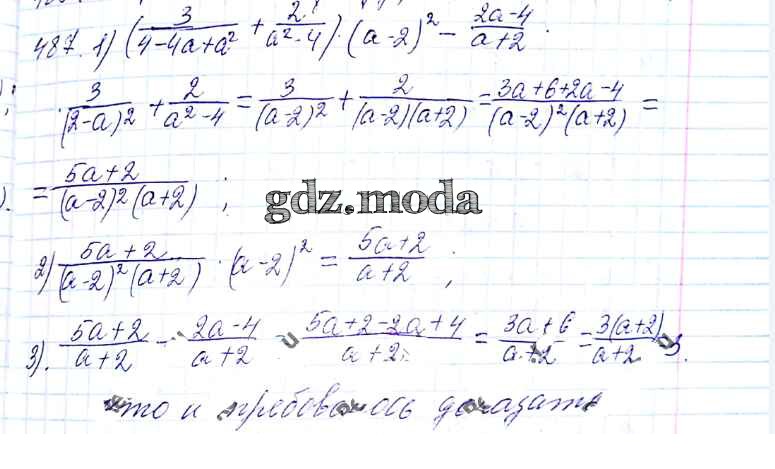 487. 1) (3/(4-4a+a²) + 2/(a²-4)) · (a-2)² - (2a-4)/(a+2).
3/(2-a)² + 2/(a²-4) = 3/(a-2)² + 2/((a-2)(a+2)) = (3a+6+2a-4)/((a-2)²(a+2)) =
= (5a+2)/((a-2)²(a+2)) ;
gdz.moda
2) (5a+2)/((a-2)²(a+2)) · (a-2)² = (5a+2)/(a+2) ;
3). (5a+2)/(a+2) - (2a-4)/(a+2) = (5a+2-2a+4)/(a+2) = (3a+6)/(a+2) = 3(a+2)/(a+2) = 3.
что и требовалось доказать